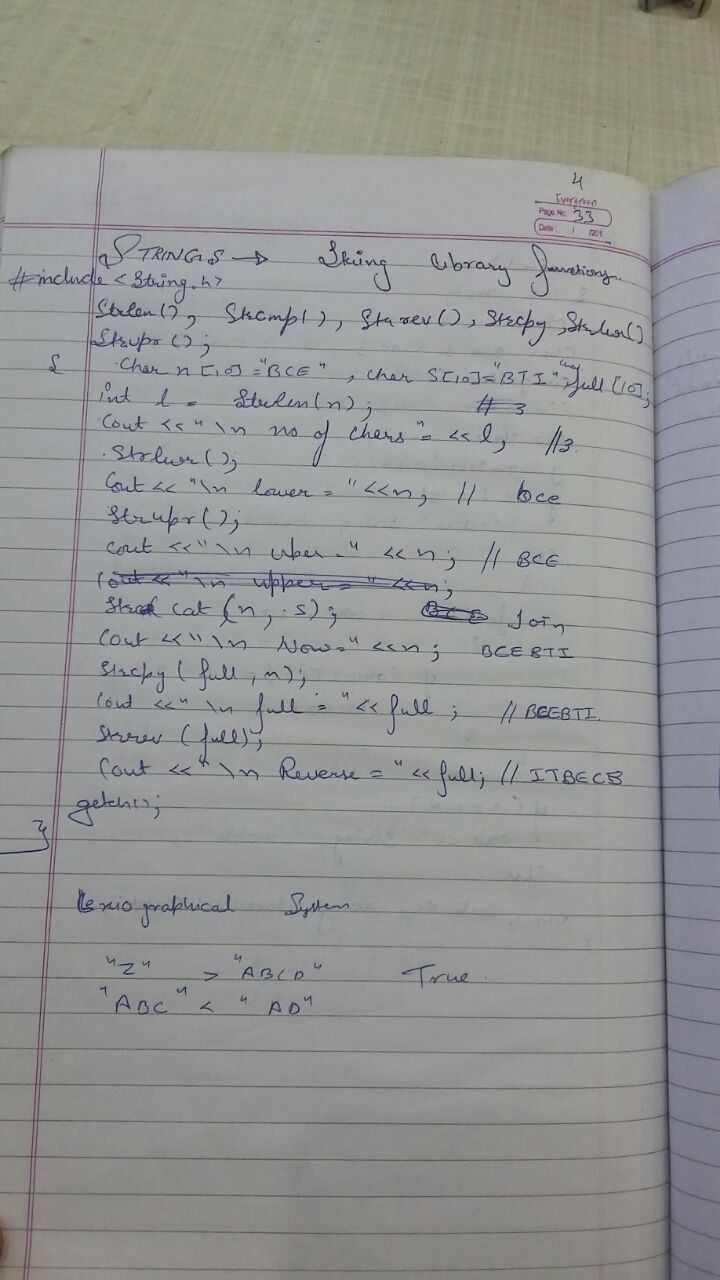 4
Evergreen
Page No. 33
Date / /201
STRINGS → String library functions
#include <String.h>
Strlen(), Strcmp(), Strrev(), Strcpy, Strlwr()
Strupr();
{ Char n[10]="BCE", char S[10]="BTI", char full [10];
int l = Strlen(n); // 3
Cout <<"\n no of chars"= <<l; //3.
Strlwr();
Cout << "\n lower = "<<n; // bce
Strupr();
cout <<"\n uper =" <<n; // BCE
Cout <<"\n upper = " <<n;
Strcat (n, s); BCE Join
Cout <<"\n Now=" <<n; BCEBTI
Strcpy (full, n);
Cout <<"\n full = "<< full ; // BCEBTI.
Strrev (full);
Cout <<"\n Reverse = "<< full; // ITBECB
getch();
}
Lexiographical System
"Z" > "ABCD" True.
"ABC" < "AD"